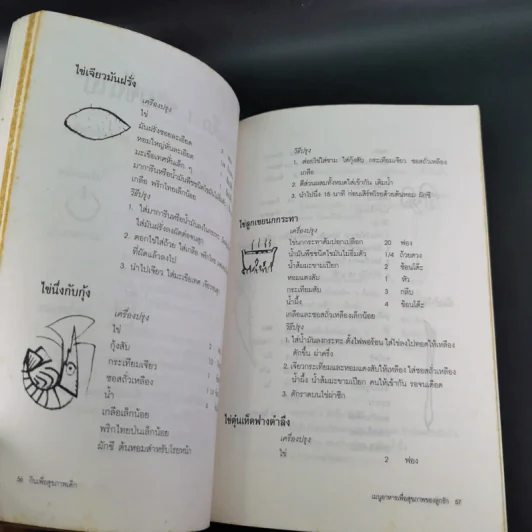 ไข่เจียวมันฝรั่ง
เครื่องปรุง
ไข่
มันฝรั่งซอยละเอียด
หอมใหญ่หั่นละเอียด
มะเขือเทศหั่นเล็ก ๆ
มาการีนหรือน้ำมันพืชชนิดไข
เกลือ พริกไทยเล็กน้อย
วิธีปรุง
1. ใส่มาการีนหรือน้ำมันลงใน
ใส่มันฝรั่งลงผัดต่อจนสุก
2. ตอกไข่ใส่ถ้วย ใส่เกลือ พริกไทย
ที่ผัดแล้วลงไป
3. นำไปเจียว ใส่มะเขือเทศ
ไข่นึ่งกับกุ้ง
เครื่องปรุง
ไข่
กุ้งสับ
กระเทียมเจียว
ซอสถั่วเหลือง
น้ำ
เกลือเล็กน้อย
พริกไทยป่นเล็กน้อย
ผักชี ต้นหอมสำหรับโรยหน้า
56 กินเพื่อสุขภาพเด็ก
วิธีปรุง
1. ต่อยไข่ใส่ชาม ใส่กุ้งสับ กระเทียมเจียว ซอสถั่วเหลือง
เกลือ
2. ตีส่วนผสมทั้งหมดให้เข้ากัน เติมน้ำ
3. นำไปนึ่ง 15 นาที ก่อนเสิร์ฟโรยด้วยต้นหอม ผักชี
ไข่ลูกเขยนกกระทา
เครื่องปรุง
ไข่นกกระทาต้มปอกเปลือก 20 ฟอง
น้ำมันพืชชนิดไขมันไม่อิ่มตัว 1/4 ถ้วยตวง
น้ำส้มมะขามเปียก 2 ช้อนโต๊ะ
หอมแดงสับ 1 หัว
กระเทียมสับ 3 กลีบ
น้ำผึ้ง 4 ช้อนโต๊ะ
เกลือและซอสถั่วเหลืองเล็กน้อย
วิธีปรุง
1. ใส่น้ำมันลงกระทะ ตั้งไฟพอร้อน ใส่ไข่ลงไปทอดให้เหลือง
ตักขึ้น ผ่าครึ่ง
2. เจียวกระเทียมและหอมแดงสับให้เหลือง ใส่ซอสถั่วเหลือง
น้ำผึ้ง น้ำส้มมะขามเปียก คนให้เข้ากัน รอจนเดือด
3. ตักราดบนไข่ผ่าซีก
ไข่ตุ๋นเห็ดฟางตำลึง
เครื่องปรุง
ไข่ 2 ฟอง
เมนูอาหารเพื่อสุขภาพของลูกรัก 57